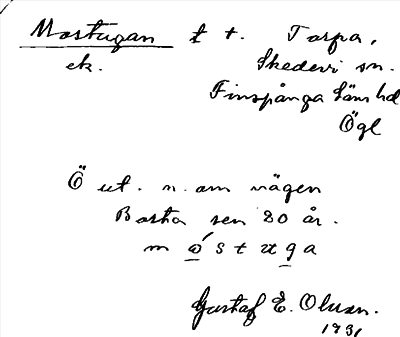 Mostugan t t. Torpa,
ek. Skedevi sn.
Finspånga läns hd
Ögl
Ö ut. n. om vägen
Borta sen 80 år.
m o s t u g a
Gustaf E. Olsson.
1931